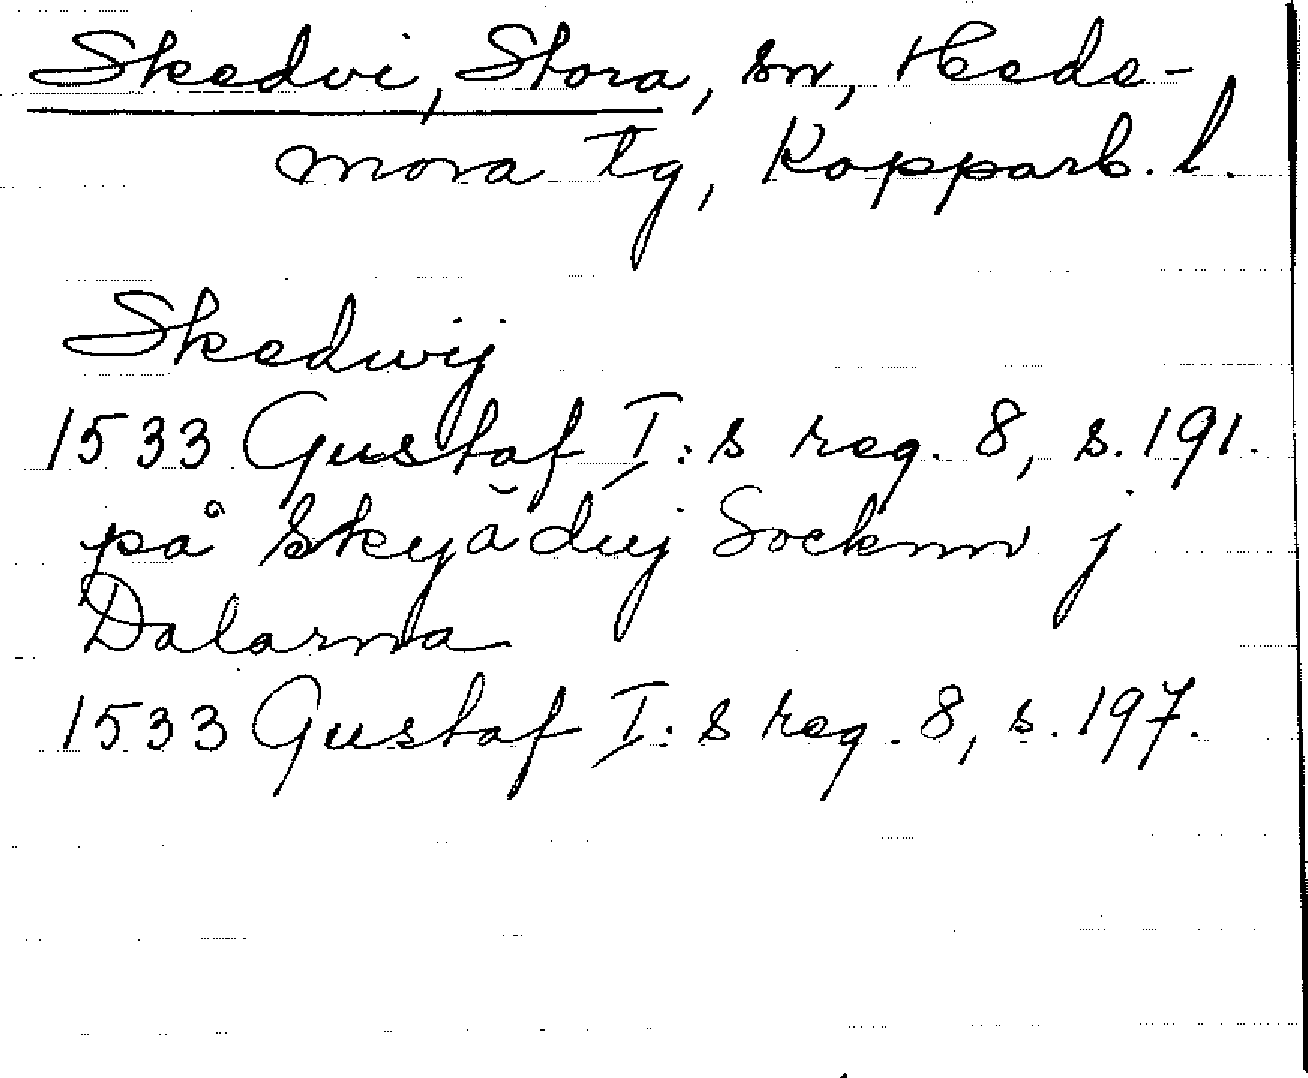 Skedvi, Stora, sn, Hede-
mora tg, Kopparb. l.
Skedwij
1533 Gustaf I:s reg. 8, s. 191.
på Skyädvij Socknn j
Dalarna
1533 Gustaf I:s reg. 8, s. 197.